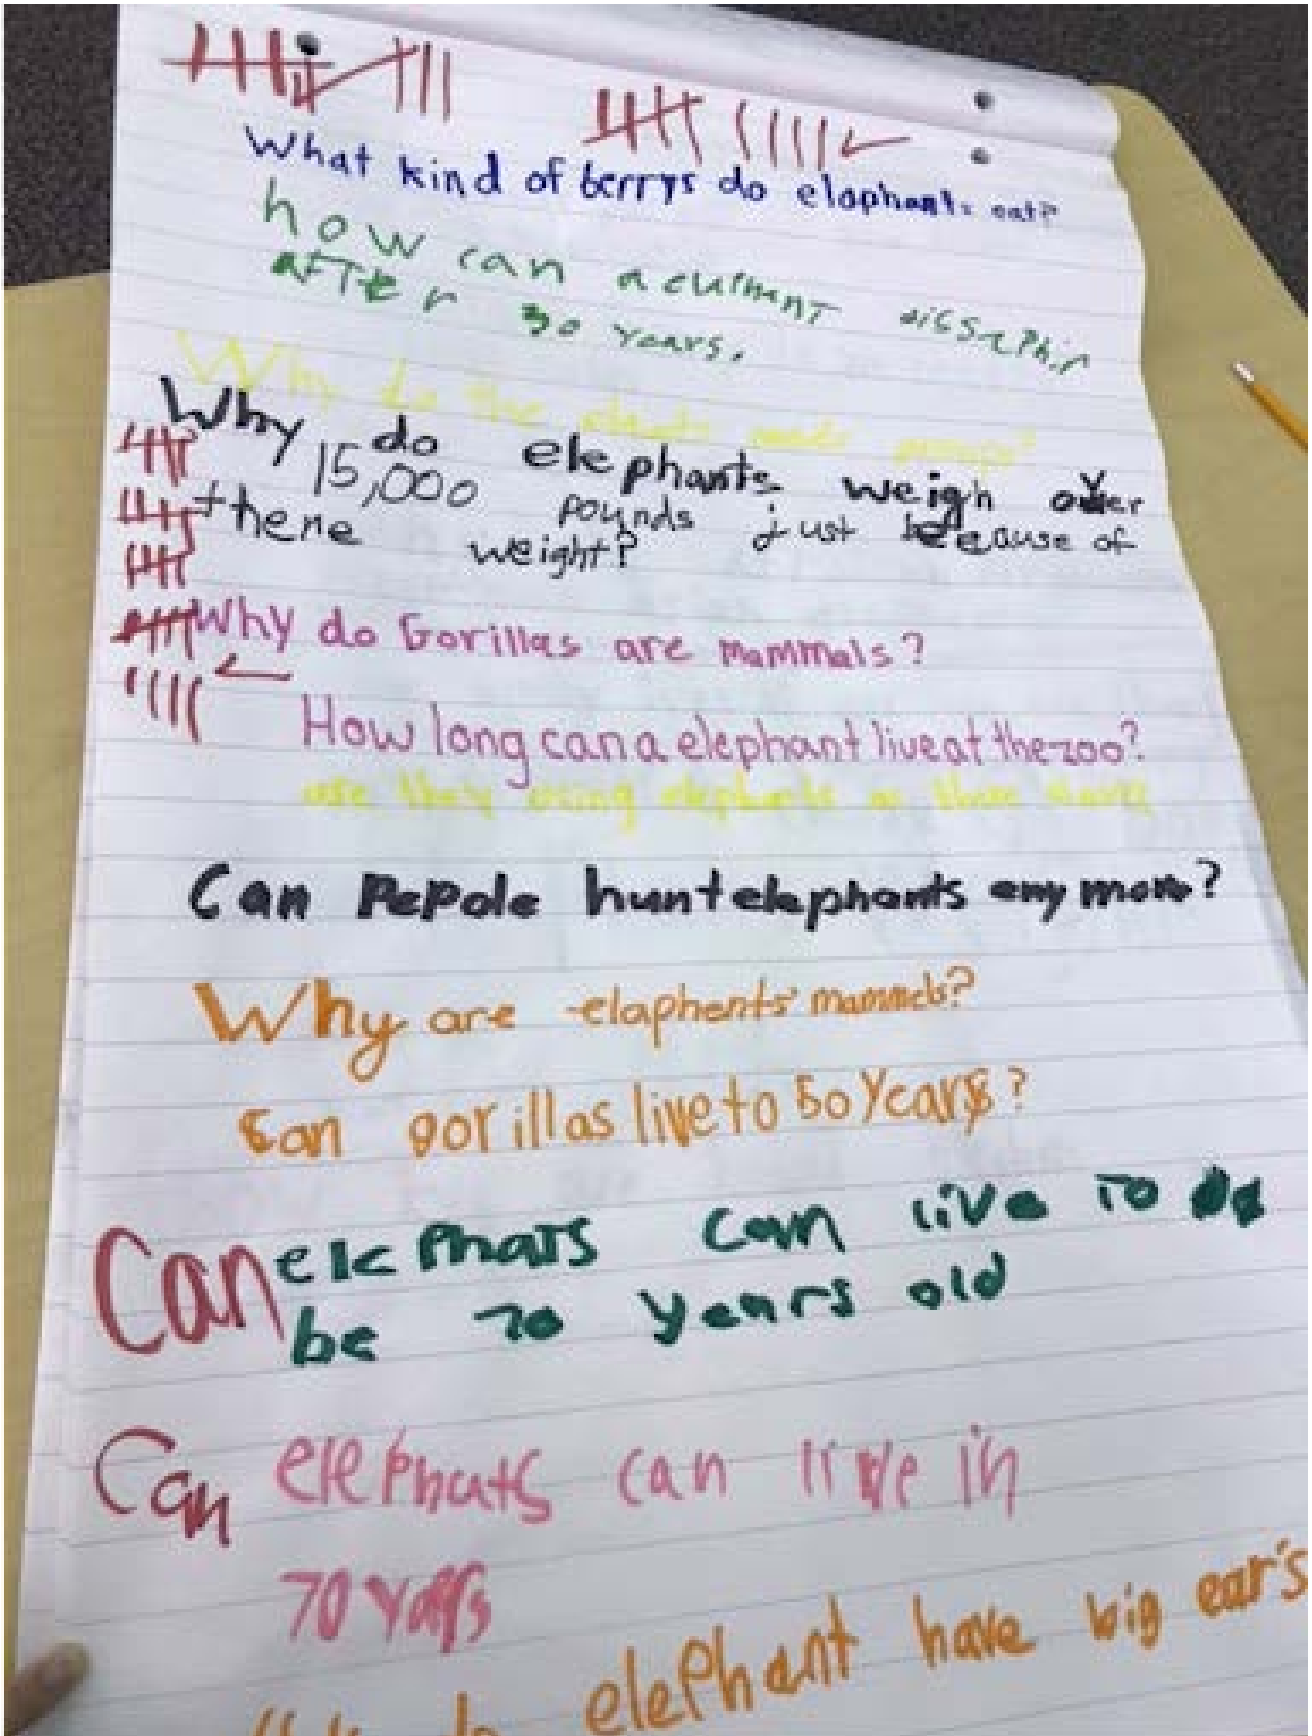 What kind of berrys do elaphants eat?
how can a elument dissaphir
AFTEr 30 Years.
Why do the
Why do elephants weigh over
15,000 pounds just because of
there weight?
Why do Gorillas are mammals?
How long can a elephant live at the zoo?
are they using elephants as
Can PePole hunt elephants eny more?
Why are elaphents mammels?
Can gorillas live to 50 Years?
Can elePhats can live to
be 70 years old
Can elePhats can live in
70 years
elephant have big ear's